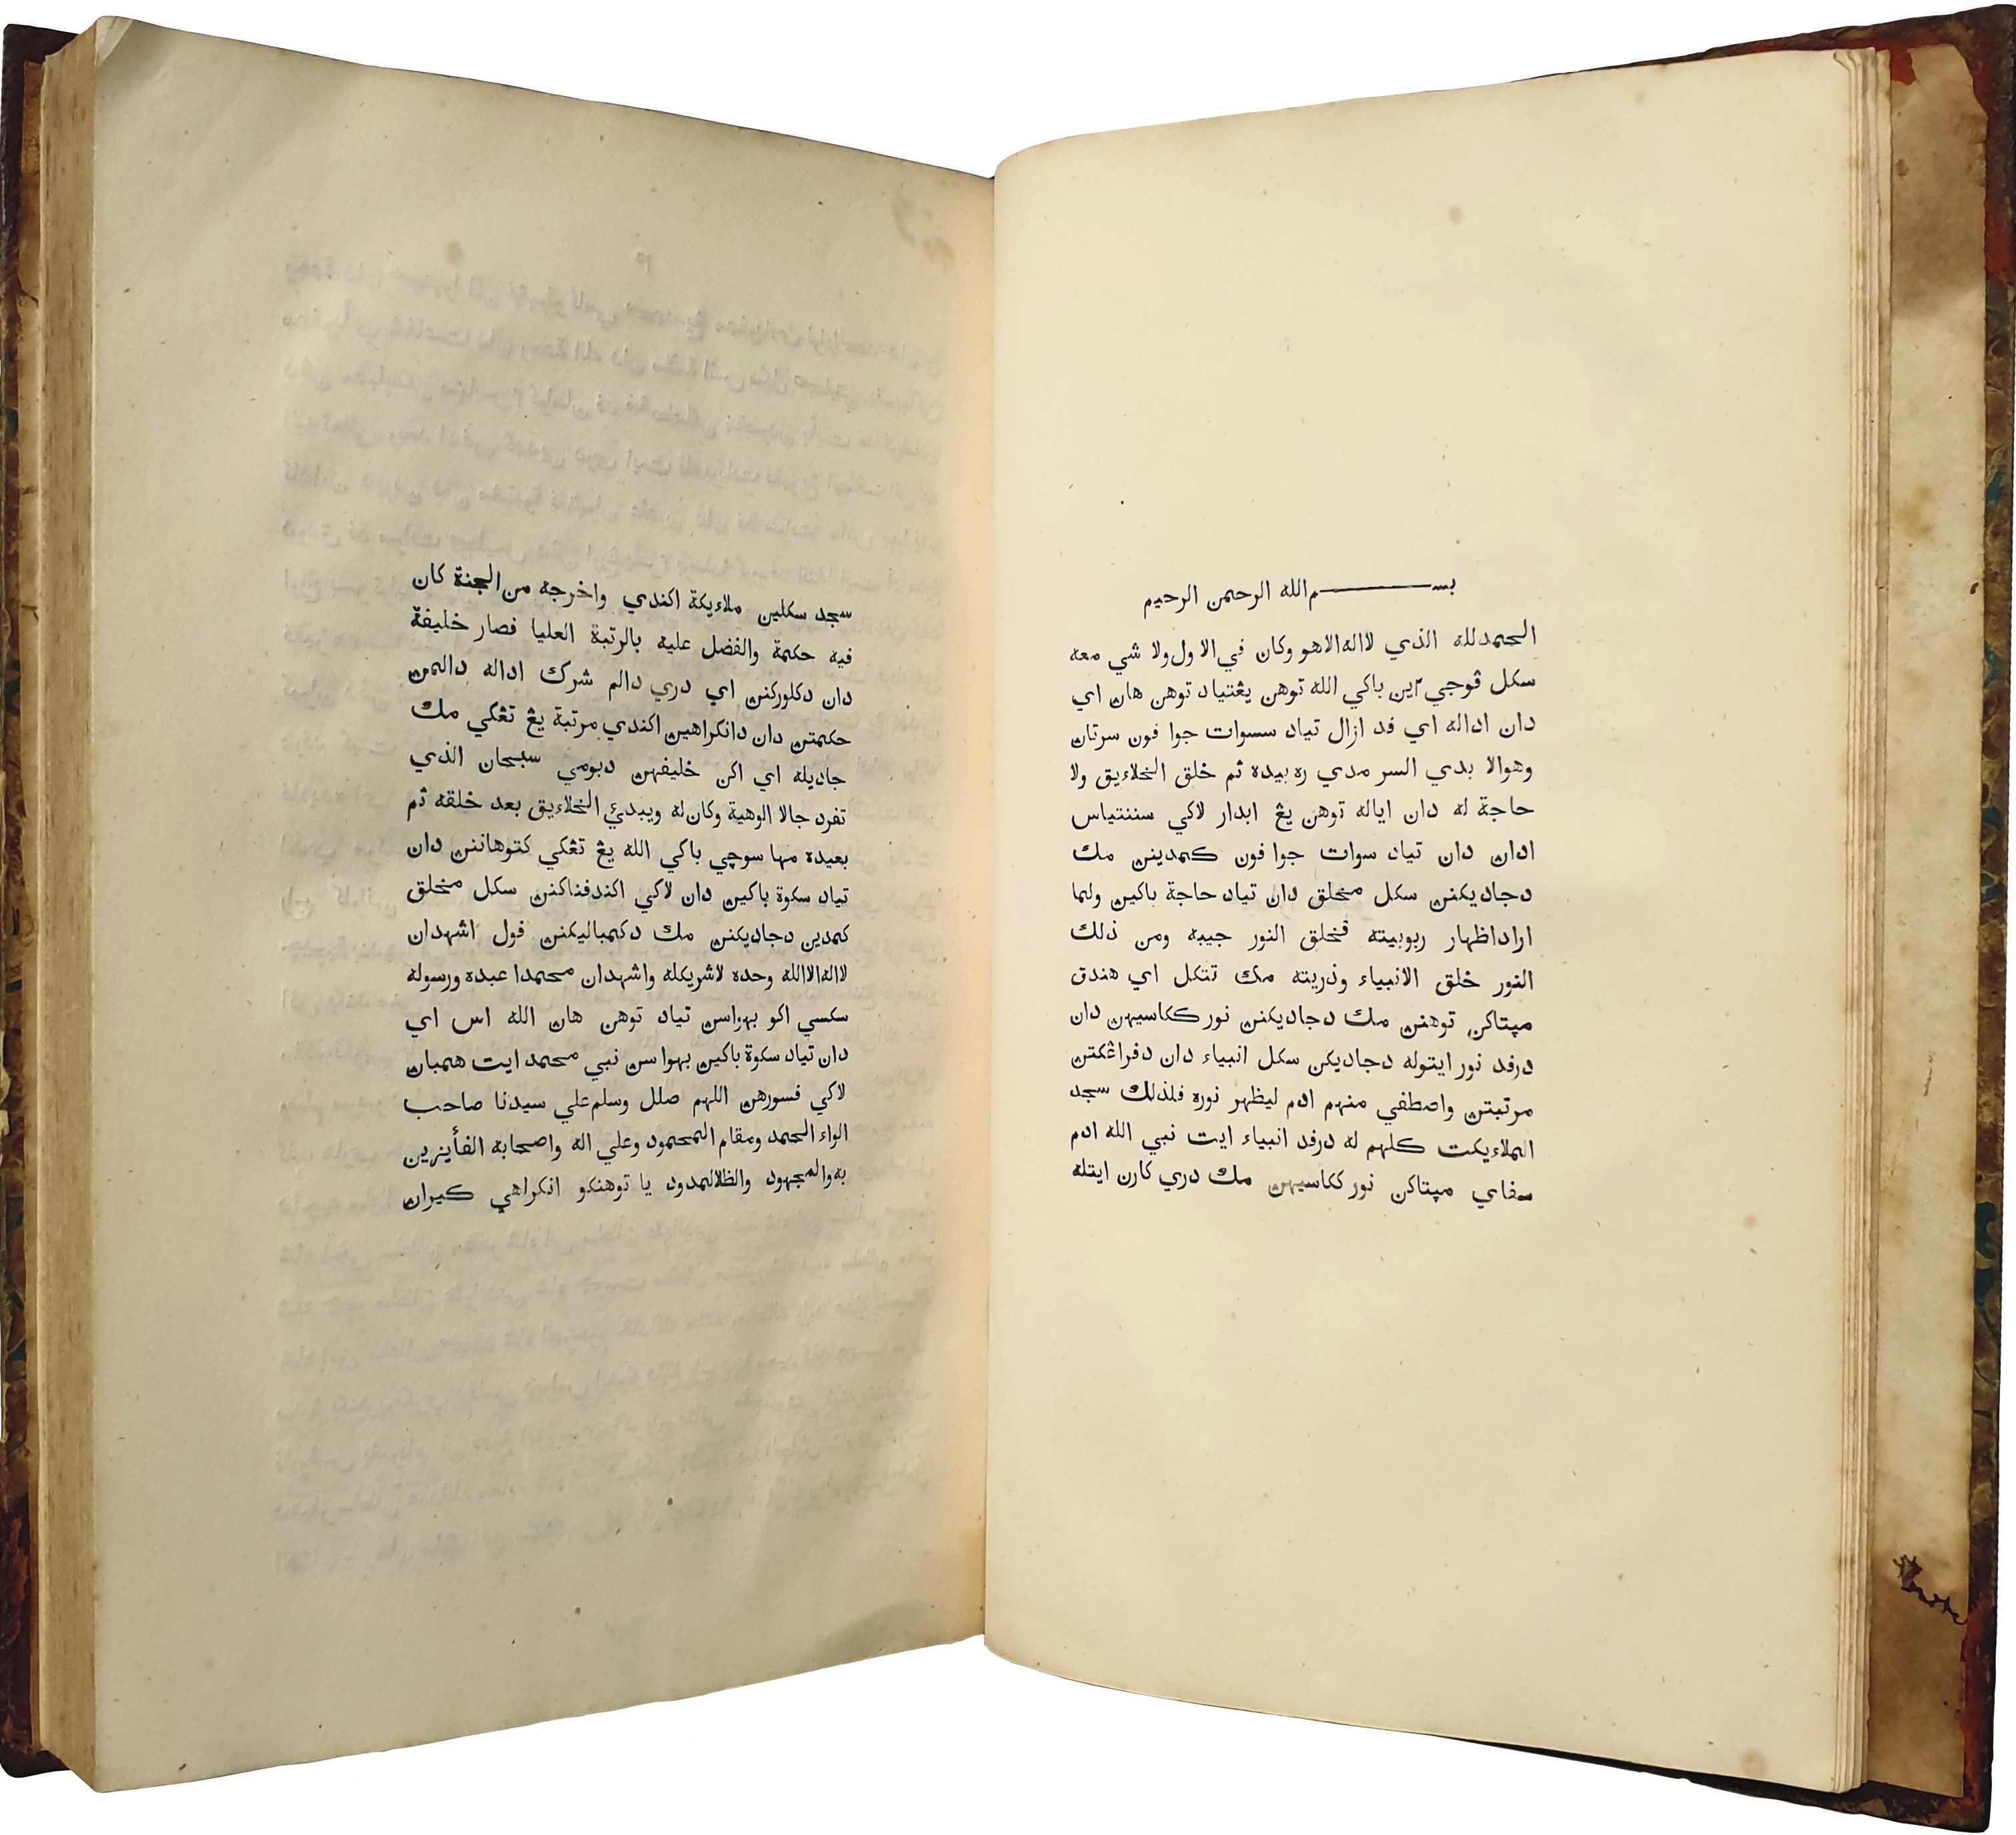 بســـــــــم الله الرحمن الرحيم
الحمدلله الذي لااله الاهو وكان في الاول ولا شي معه
سكل ڤوجي٢ين باكي الله توهن يڠتياد توهن هان اي
دان اداله اي فد ازال تياد سسوات جوا فون سرتان
وهوالا بدي السر مدي ره بيده ثم خلق الخلاءيق ولا
حاجة له دان اياله توهن يڠ ابدار لاكي سنتياس
ادان دان تياد سوات جوا فون كمدينن مك
دجاديكنن سكل مخلق دان تياد حاجة باكين ولما
اراداظهار ربوبيته فخلق النور جيبه ومن ذلك
النور خلق الانبياء وذريته مك تتكل اي هندق
مپتاكن توهنن مك دجاديكنن نور ككاسيهن دان
درفد نور ايتوله دجاديكن سكل انبياء دان دفراڠكتن
مرتبتن واصطفي منهم ادم ليظهر نوره فلذلك سجد
الملاءيكت كلهم له درفد انبياء ايت نبي الله ادم
سفاي مپتاكن نور ككاسيهن مك دري كارن ايتله
سجد سكلين ملاءيكة اكندي واخرجه من الجنة كان
فيه حكمة والفضل عليه بالرتبة العليا فصار خليفة
دان دكلوركنن اي دري دالم شرك اداله دالمن
حكمتن دان دانكراهين اكندي مرتبة يڠ تڠكي مك
جاديله اي اكن خليفهن دبومي سبحان الذي
تفرد جالا الوهية وكان له ويبدئ الخلاءيق بعد خلقه ثم
بعيده مها سوچي باكي الله يڠ تڠكي كتوهاننن دان
تياد سكوة باكين دان لاكي اكندفناكنن سكل مخلق
كمدين دجاديكنن مك دكمباليكنن فول اشهدان
لااله الاالله وحده لاشريكله واشهدان محمدا عبده ورسوله
سكسي اكو بهواسن تياد توهن هان الله اس اي
دان تياد سكوة باكين بهواسن نبي محمد ايت همبان
لاكي فسورهن اللهم صلل وسلم علي سيدنا صاحب
الواء الحمد ومقام المحمود وعلي اله واصحابه الفأيزين
به والمجهود والظلالمدود يا توهنكو انكراهي كيران